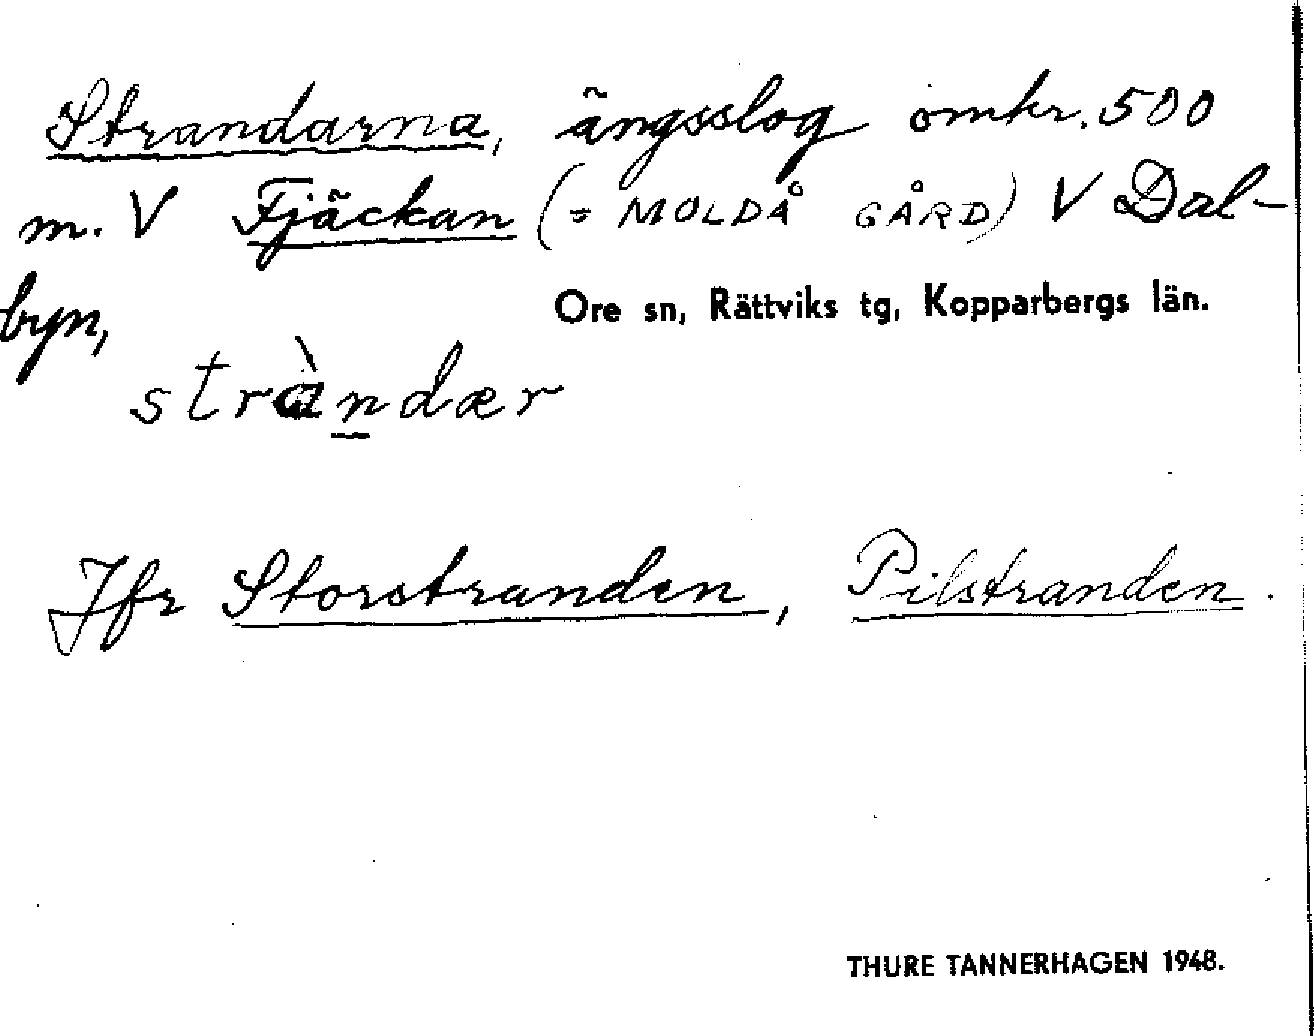 Strandarna, ängsslog omkr. 500
m. V Fjäckan (= MOLDÅ GÅRD) V Dal-
byn,
Ore sn, Rättviks tg, Kopparbergs län.
stràndær
Jfr Storstranden, Pilstranden.
THURE TANNERHAGEN 1948.